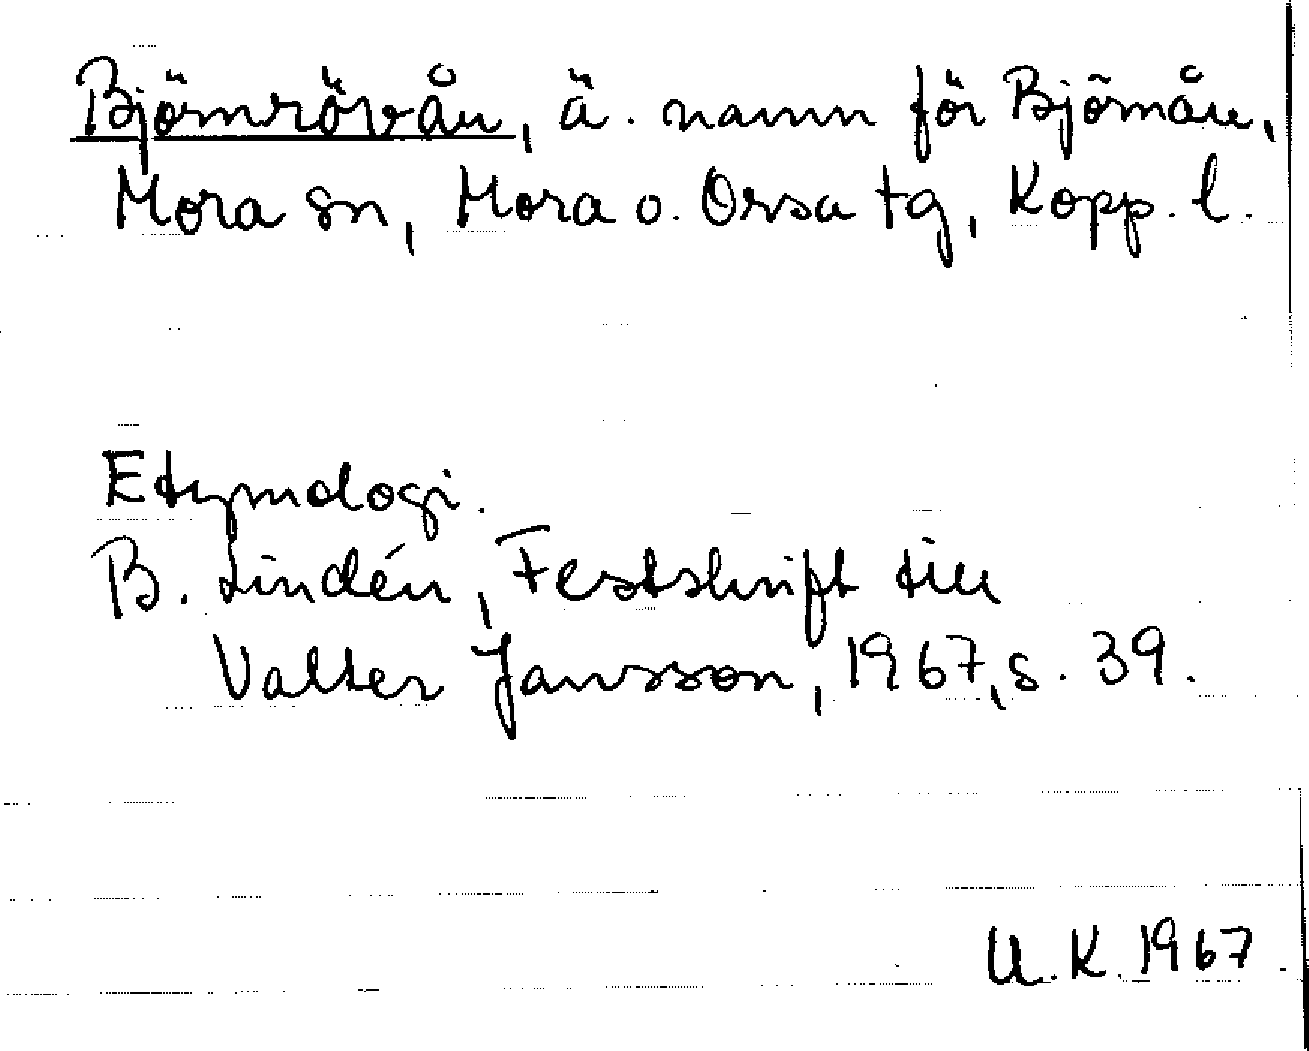 Björnrövån, ä. namn för Björnån,
Mora sn, Mora o. Orsa tg, Kopp. l.
Etymologi.
B. Lindén, Festskrift till
Valter Jansson, 1967, s. 39.
U.K. 1967.